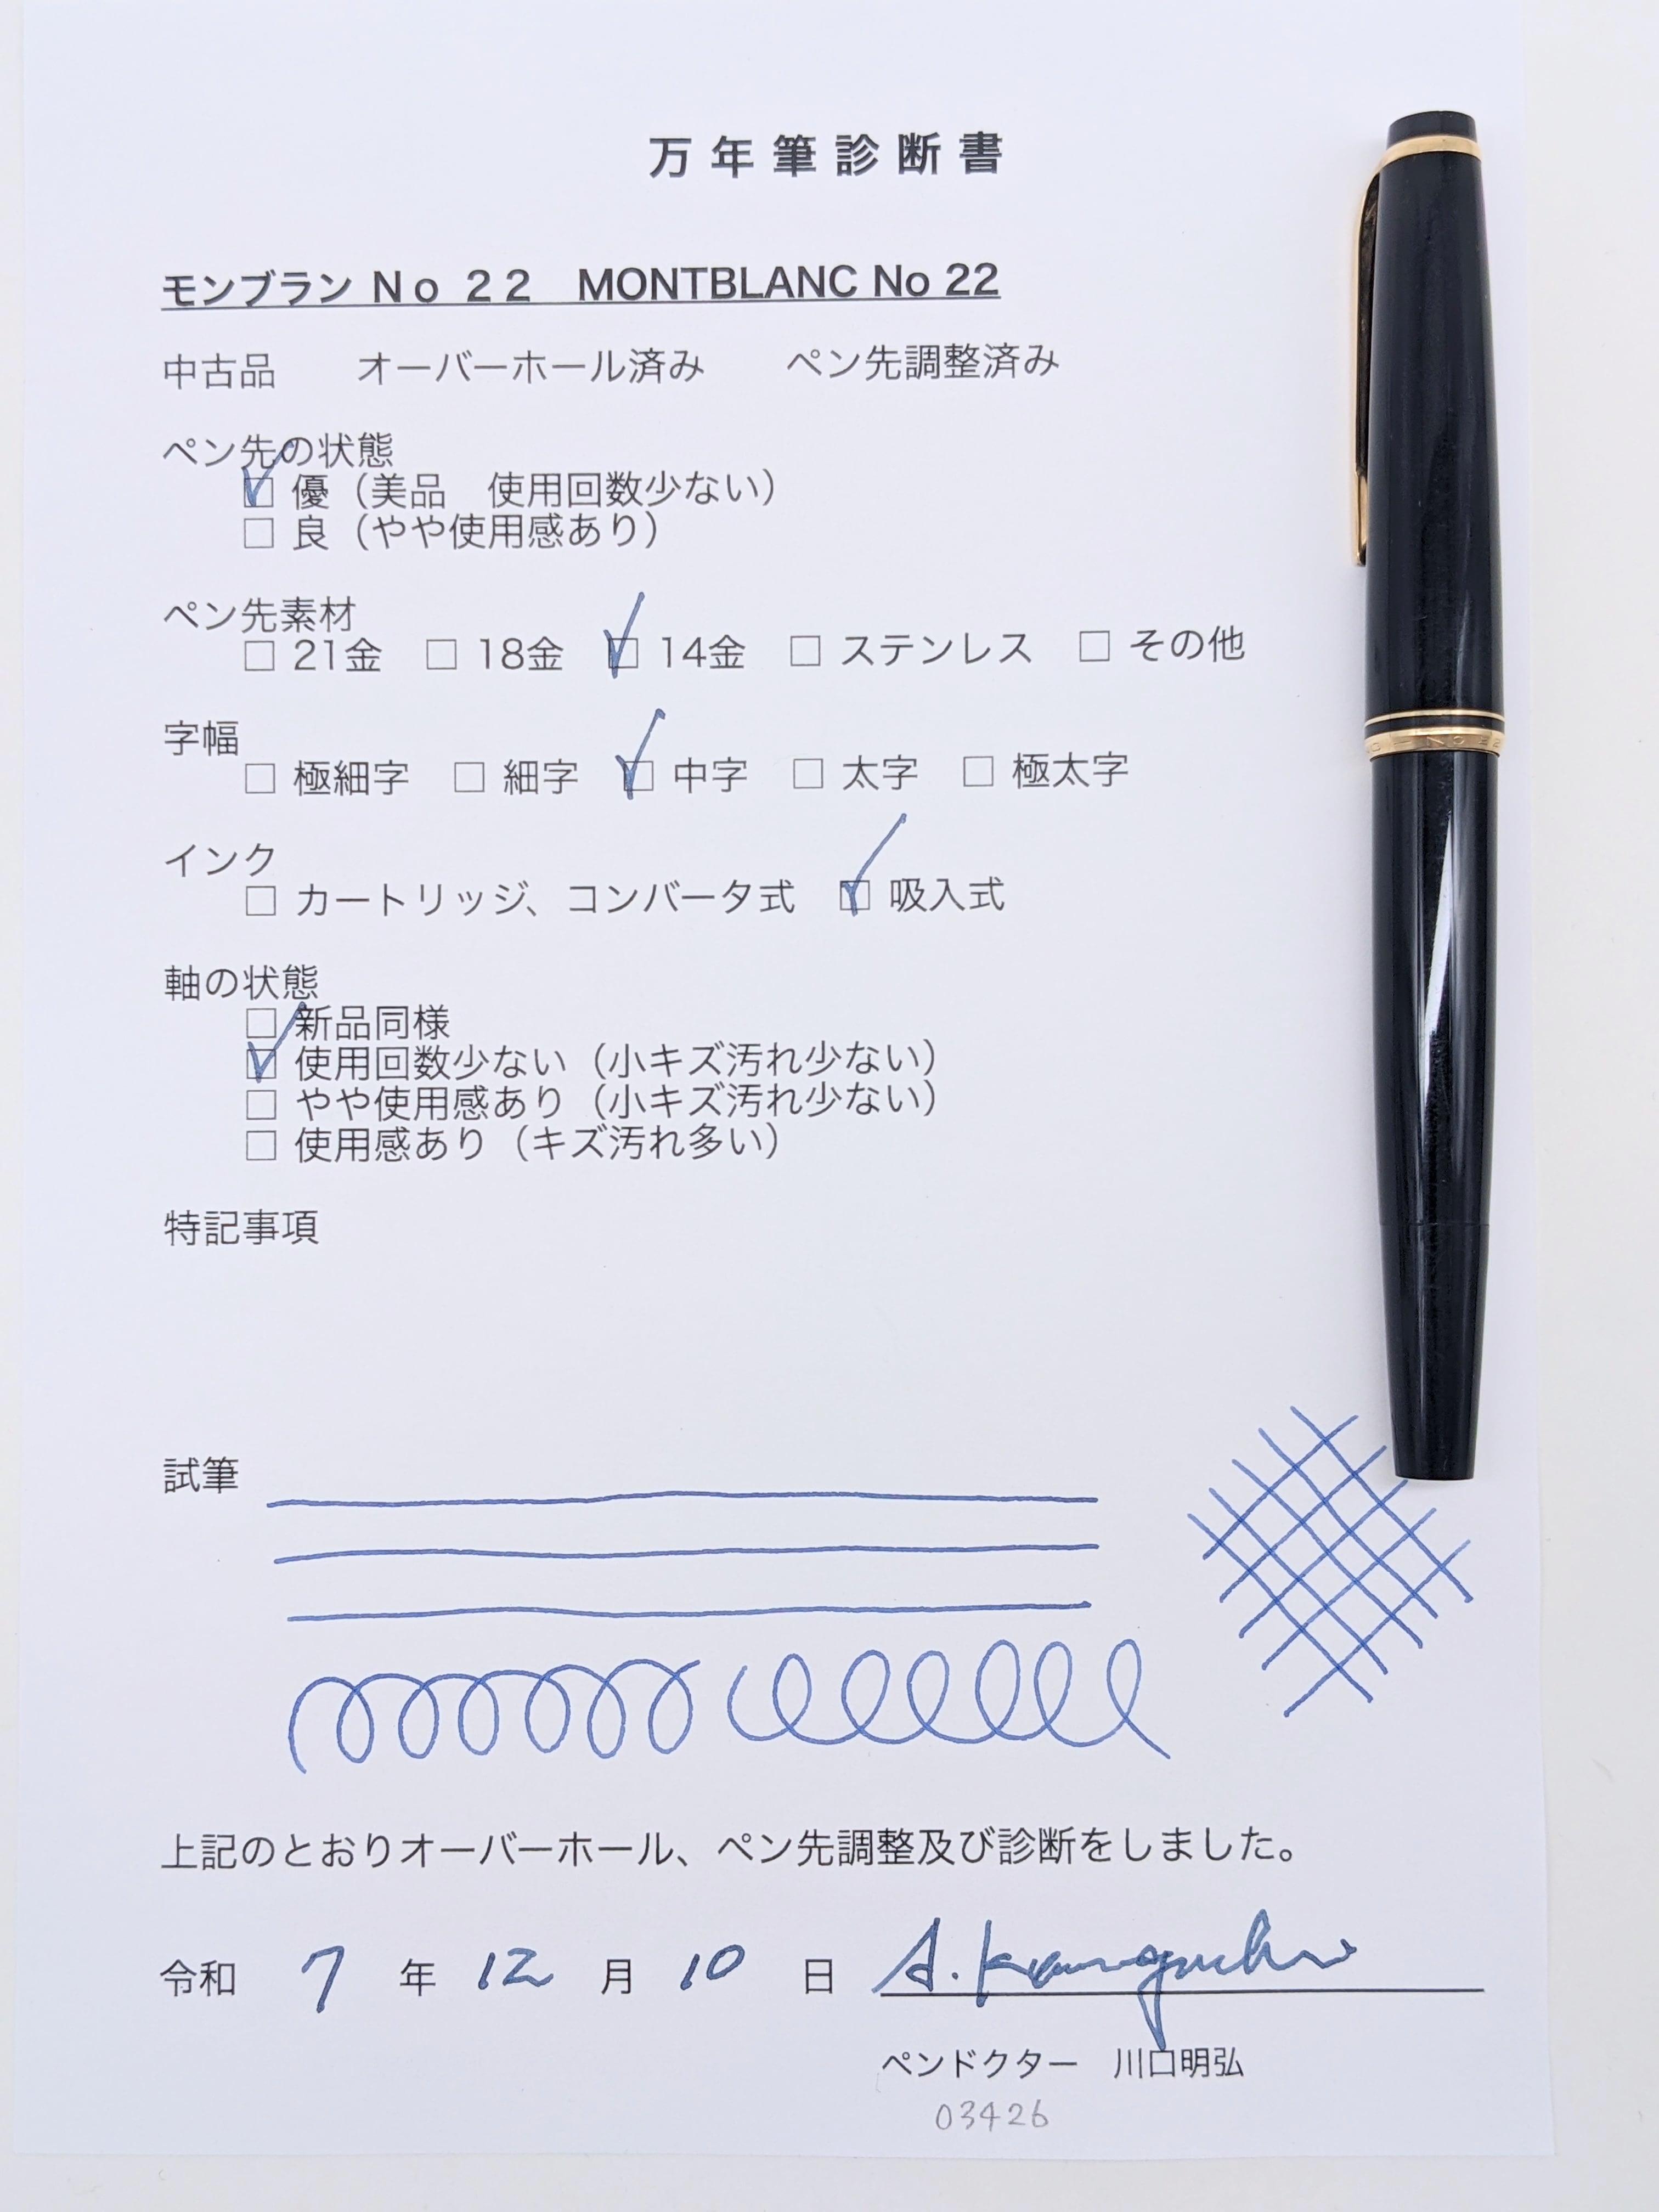 万年筆診断書
モンブラン Ｎｏ ２２　MONTBLANC No 22
中古品　　オーバーホール済み　　ペン先調整済み
ペン先の状態
☑ 優（美品　使用回数少ない）
□ 良（やや使用感あり）
ペン先素材
□ 21金　□ 18金　☑ 14金　□ ステンレス　□ その他
字幅
□ 極細字　□ 細字　☑ 中字　□ 太字　□ 極太字
インク
□ カートリッジ、コンバータ式　☑ 吸入式
軸の状態
□ 新品同様
☑ 使用回数少ない（小キズ汚れ少ない）
□ やや使用感あり（小キズ汚れ少ない）
□ 使用感あり（キズ汚れ多い）
特記事項
試筆
上記のとおりオーバーホール、ペン先調整及び診断をしました。
令和　7　年　12　月　10　日　A. Kawaguchi
ペンドクター　川口明弘
03426
No 22